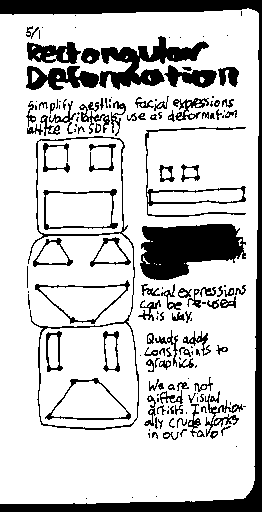 5/1
Rectangular
Deformation
simplify gestling facial expressions
to quadrilaterals, use as deformation
lattice (in SDF!)
Facial expressions
can be re-used
this way.
Quads adds
constraints to
graphics.
We are not
gifted visual
artists. Intention-
ally crude works
in our favor